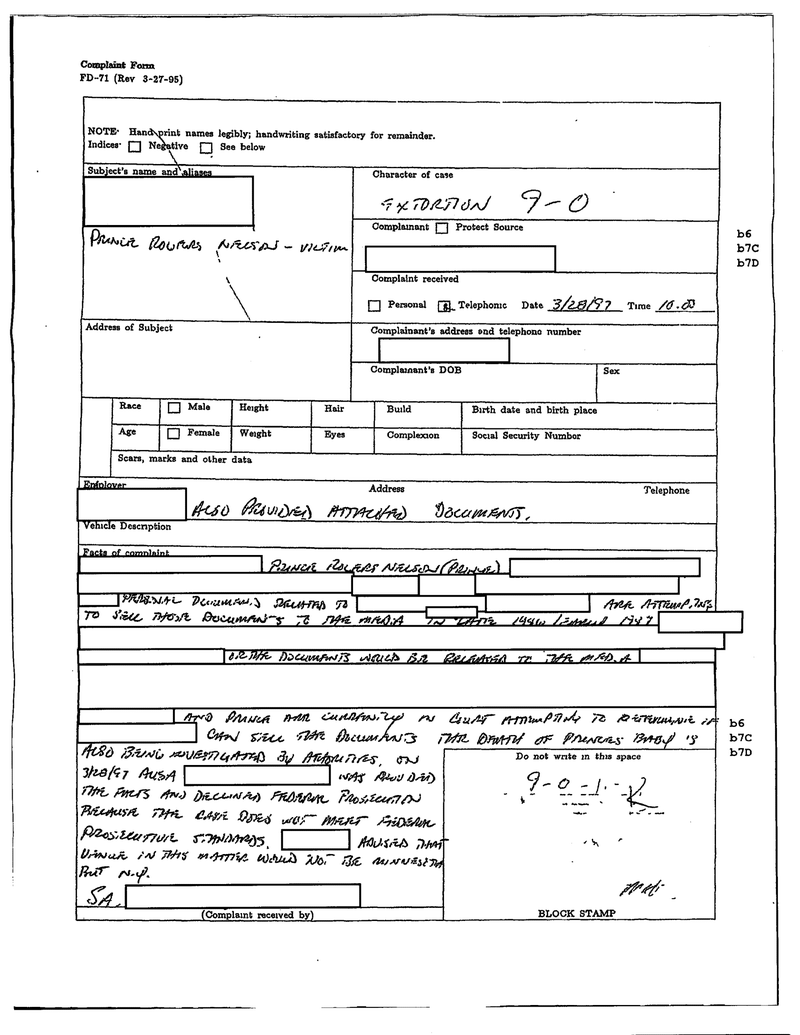 Complaint Form
FD-71 (Rev 3-27-95)
NOTE· Hand print names legibly; handwriting satisfactory for remainder.
Indices· Negative See below
Subject's name and aliases
PRINCE ROGERS NELSON - VICTIM
Character of case
EXTORTION 9-0
Complainant Protect Source
b6
b7C
b7D
Complaint received
Personal Telephonic Date 3/28/97 Time 10:00
Address of Subject
Complainant's address and telephone number
Complainant's DOB
Sex
Race Male Height Hair Build Birth date and birth place
Age Female Weight Eyes Complexion Social Security Number
Scars, marks and other data
Employer Address Telephone
ALSO PROVIDED ATTACHED DOCUMENTS.
Vehicle Description
Facts of complaint
PRINCE ROGERS NELSON (PRINCE)
PERSONAL DOCUMENTS RELATED TO ARE ATTEMPTING
TO SELL THOSE DOCUMENTS TO THE MEDIA IN LATE 1996 1997
OR THE DOCUMENTS WOULD BE RELEASED TO THE MEDIA
AND PRINCE ARE CURRENTLY IN COURT ATTEMPTING TO DETERMINE IF
CAN SELL THE DOCUMENTS THE DEATH OF PRINCES BABY IS
b6
b7C
b7D
ALSO BEING INVESTIGATED BY AUTHORITIES. ON
3/28/97 AUSA WAS ADVISED
THE FACTS AND DECLINED FEDERAL PROSECUTION
BECAUSE THE CASE DOES NOT MEET FEDERAL
PROSECUTIVE STANDARDS. ADVISED THAT
VENUE IN THIS MATTER WOULD NOT BE MINNESOTA
BUT N.Y.
SA
(Complaint received by)
Do not write in this space
9-0-1-
BLOCK STAMP